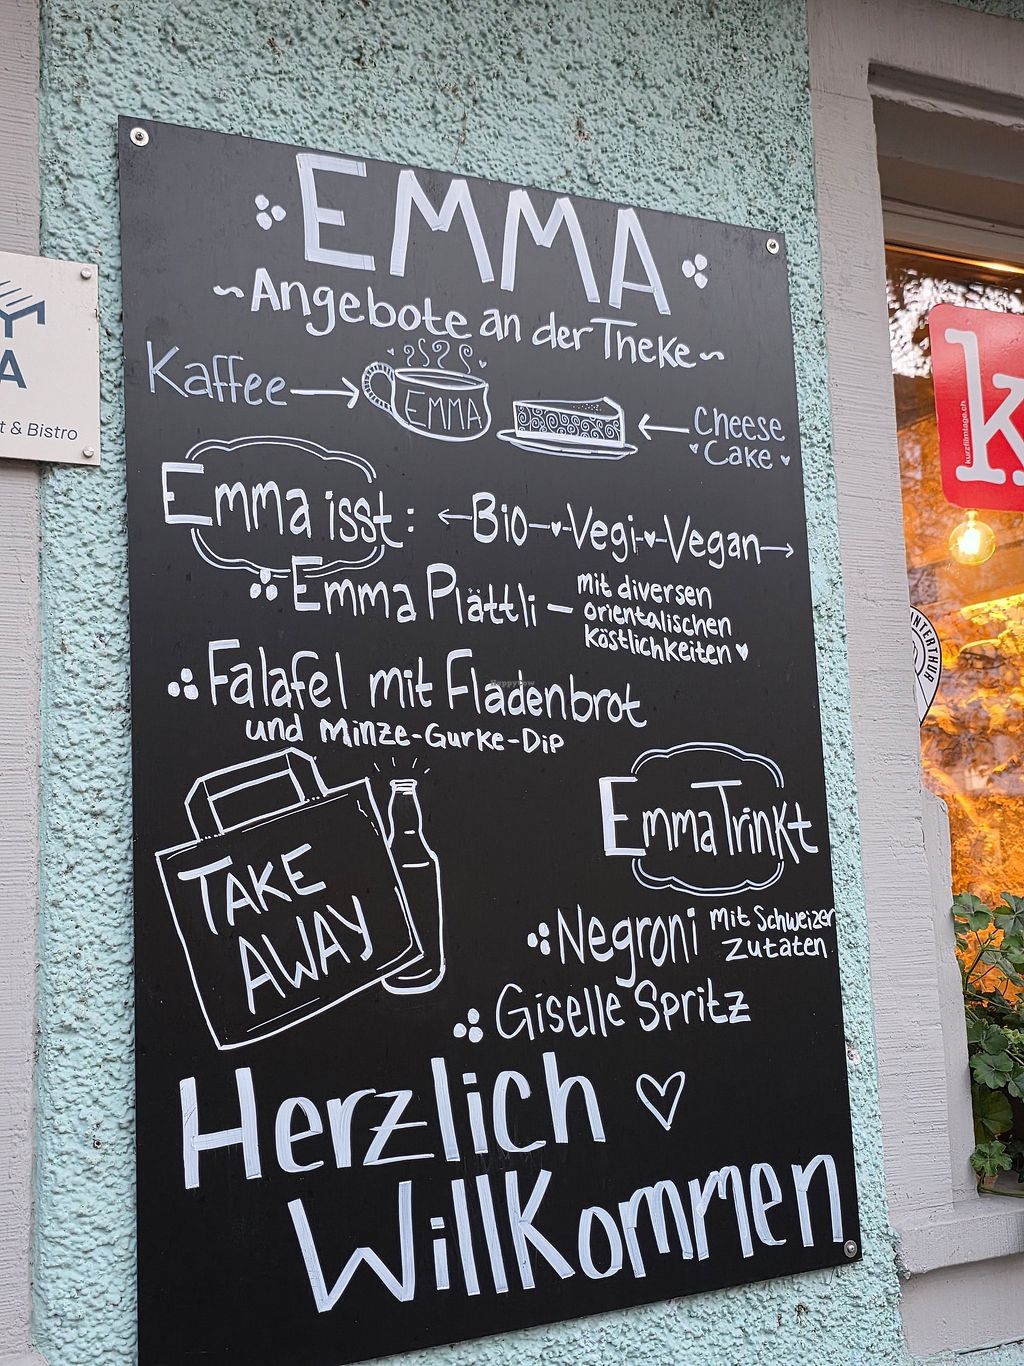 EMMA
~Angebote an der Theke~
Kaffee
EMMA
Cheese
Cake
Emma isst:
Bio - Vegi - Vegan
Emma Plättli – mit diversen
orientalischen
Köstlichkeiten
Falafel mit Fladenbrot
und Minze-Gurke-Dip
TAKE
AWAY
Emma Trinkt
Negroni mit Schweizer
Zutaten
Giselle Spritz
Herzlich
Willkommen
t & Bistro
k
kurzfilmtage.ch
INTERTHUR